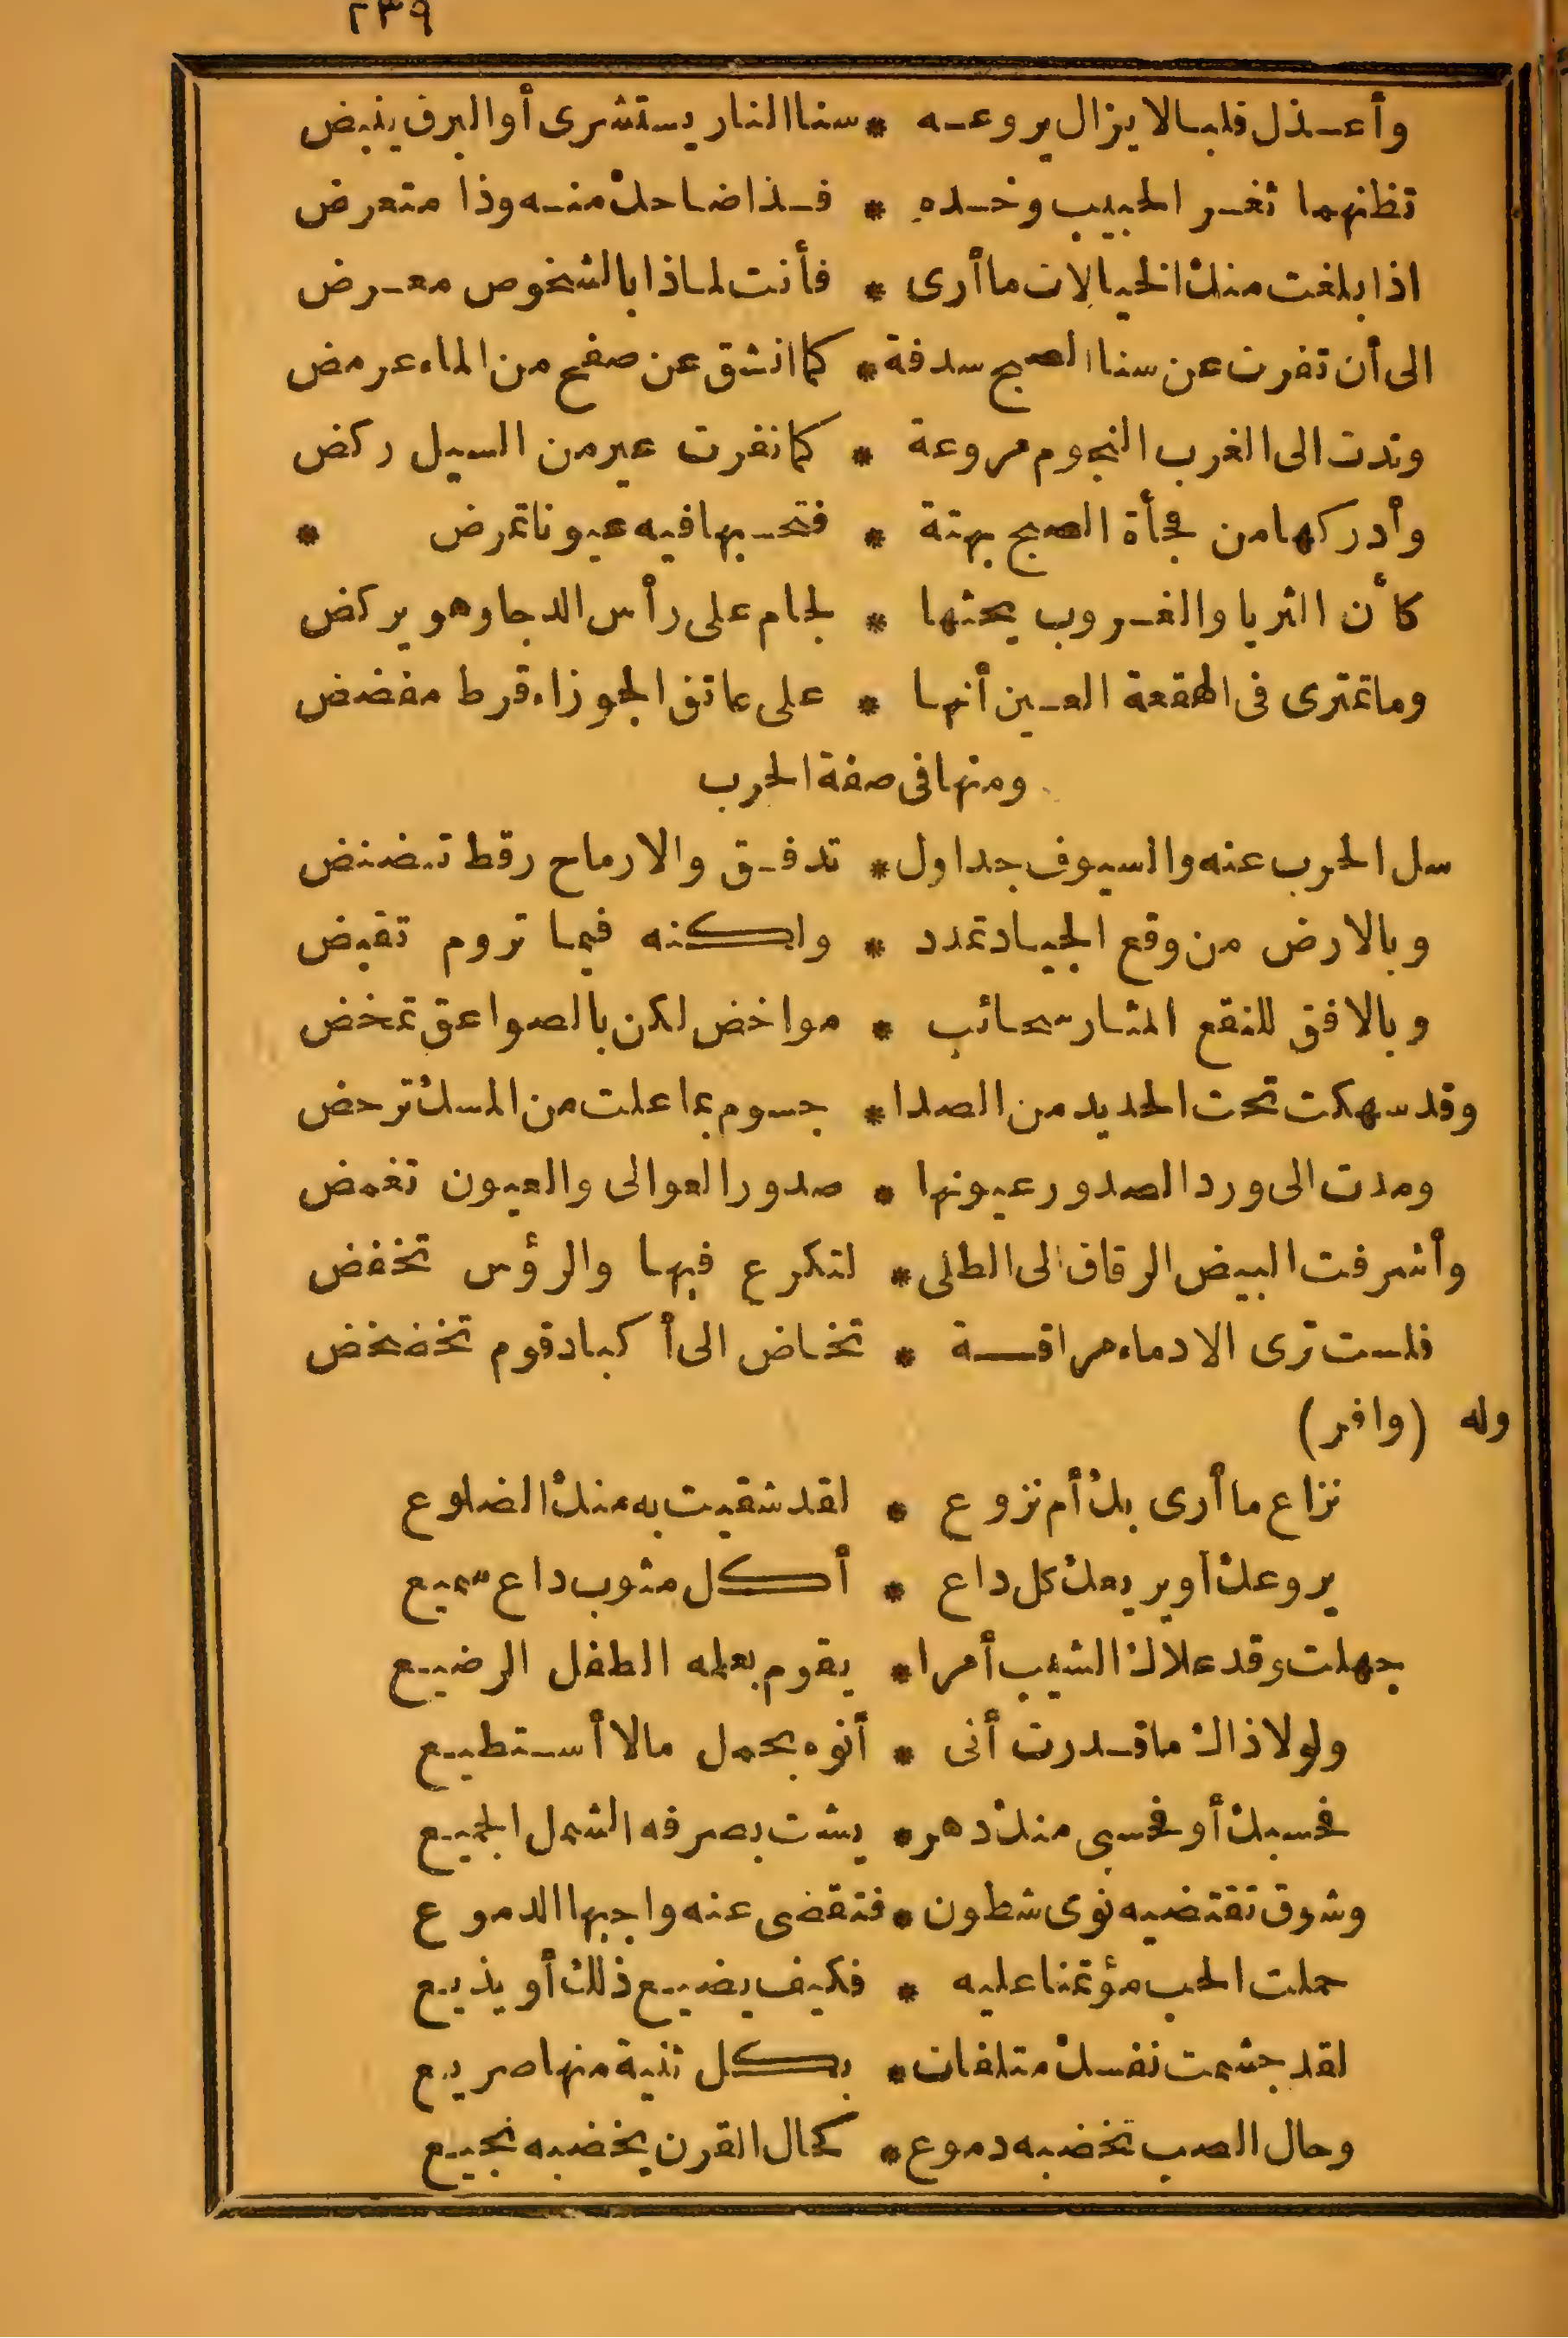 ٢٣٩
وأعـذل قلبـا لا يزال يروعـه * سنا النار يستشرى أو البرق ينبض
تظنهما ثغـر الحبيب وخـده * فـذا ضاحك منـه وذا متعرض
اذا بلغت منك الخيالات ما أرى * فأنت لماذا بالشخوص معـرض
الى أن تفرت عن سنا الصبح سدفة * كما انشق عن صفح من الماء عرمض
وندت الى الغرب النجوم مروعة * كما نفرت عير من السيل ركض
وأدركها من فجأة الصبح بهتة * فتحـبها فيه عيونا تمرض *
كأن الثريا والغـروب يحثها * لجام على رأس الدجا وهو يركض
وما تمترى فى الهقعة العـين أنها * على عاتق الجوزاء قرط مفضض
ومنها فى صفة الحرب
سل الحرب عنه والسيوف جداول * تدفـق والارماح رقط تنضنض
وبالارض من وقع الجيـاد تمدد * ولكنه فيما تروم تقبض
وبالافق للنقع المثـار سحـائب * مواخض لكن بالصواعق تمخض
وقد سهكت تحت الحديد من الصدا * جسوم بما علت من المسك ترحض
ومدت الى ورد الصدور عيونها * صدور العوالى والعيون تغمض
وأشرفت البيض الرقاق الى الطلى * لتكرع فيها والرؤس تخفض
فلست ترى الا دماء مراقـة * تخاض الى أكباد قوم تخضخض
وله (وافر)
نزاع ما أرى بك أم نزوع * لقد شقيت به منك الضلوع
يروعك أو يريعك كل داع * أكل مثوب داع سميع
جهلت وقد علاك الشيب أمرا * يقوم بعلمه الطفل الرضيـع
ولولا ذاك ما قـدرت أنى * أنوء بحمل ما لا أسـتطيـع
فحسبك أو فحسبى منك دهر * يشت بصرفه الشمل الجميـع
وشوق تقتضيه نوى شطون * فتقضى عنه واجبها الدموع
حملت الحب مؤتمنا عليه * فكيف يضيـع ذلك أو يذيـع
لقد جشمت نفسك متلفات * بكل ثنية منها صريـع
وحال الصب تخضبه دموع * كحال القرن يخضبه نجيـع